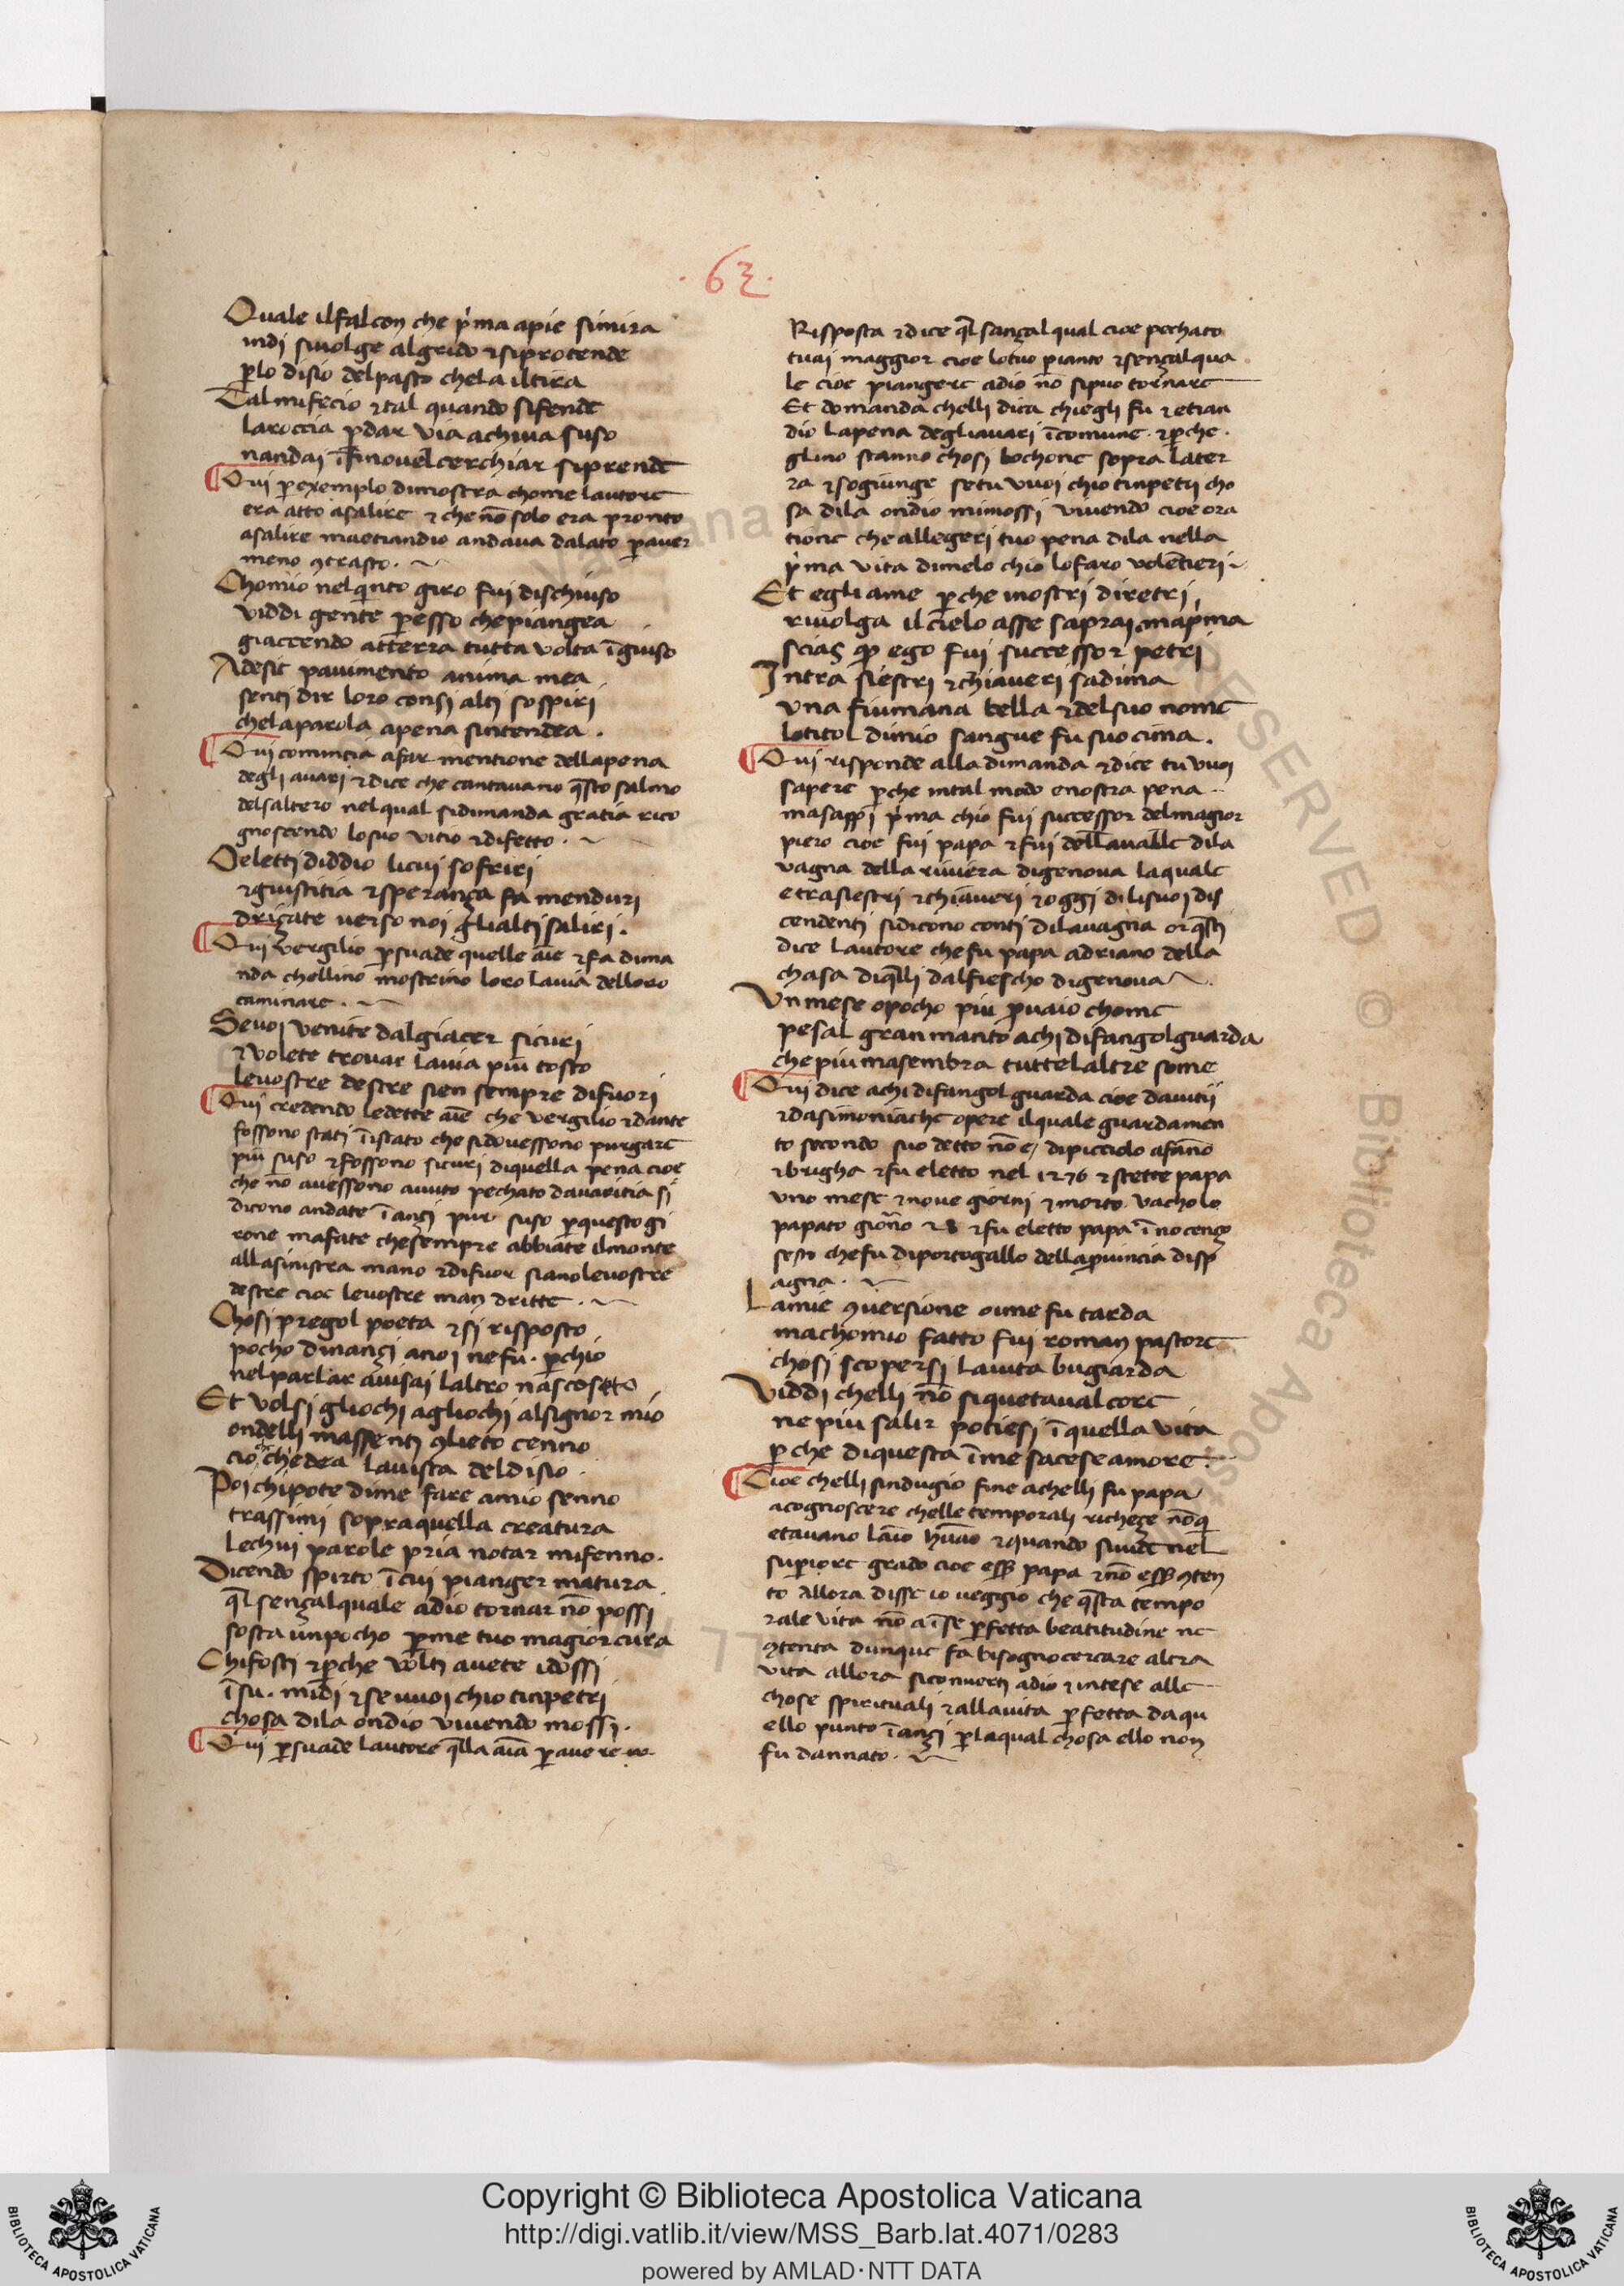 · 63 ·
Quale ilfalcon che p̓ma apie simira
indj siuolge algrido ⁊siprotende
ꝑlo disio delpasto chela iltira
Tal mifecio ⁊tal quando sifende
laroccia ꝑdar via achiua suso
nandaj īfinouel cerchiar siprende
Qui ꝑexemplo dimostra chome lautore
era atto asalire ⁊ che nō solo era pronto
asalire maetiandio andaua dalato ꝑauer
meno ꝯtrasto.
Chomio nelqinto giro fuj dischiuso
viddi gente ꝑesso chepiangea
giaccendo atterra tutta volta īgiuso
Adesit pauimento anima mea
sentj dir loro consj altj sospirj
chelaparola apena sintendea .
Qui comincia afar mentione dellapena
deglj auarj ⁊dice che cantauano q̄sto salmo
delsaltero nelqual sidimanda gratia rico
gnoscendo losuo vitio ⁊difetto .
O elettj diddio licuj sofrirj
⁊giustitia ⁊speranza fa men durj
drizate uerso noi glialtj salirj .
Quj vergilio ꝑsuade quelle aīe ⁊fa dima
nda chellino mostrino loro lauia delloro
caminare .
Seuoj venite dalgiacer sicurj
⁊volete trouar lauia piu tosto
leuostre destre sien sempre difuorj
Quj credendo ledette aīe che vergilio ⁊dante
fossono statj īstato che sidouessono purgare
piu suso ⁊fossono sicurj diquella pena cioe
che nō auessono auuto pechato dauaritia sī
dicono andate īanzj pur suso ꝑquesto gi
rone mafate chesempre abbiate ilmonte
allasinistra mano ⁊difuor sianoleuostre
destre cioe leuostre man dritte .
Chosj pregol poeta ⁊sj risposto
pocho dinanzj anoj nefu . ꝑchio
nelparlar auisaj laltro nascosto
Et volsj gliochj agliochj alsignor mio
ondellj massentj ꝯlieto cenno
cio chedea lauista deldisio .
Poj chipote dime fare amio senno
trassimj sopraquella creatura
lechuj parole pria notar mifenno .
Dicendo spirto īcuj pianger matura
q̄l senzalquale adio tornar nō possj
sosta unpocho ꝑme tuo magior cura
Chifostj ⁊ꝑche voltj auete idossj
īsu . midj ⁊se uuoj chio tinpetrj
chosa dila ondio viuendo mossj .
Quj ꝑsuade lautore q̄lla aīa ꝑauere no
Risposta ⁊dice q̄l sanzal qual cioe pechato
tuaj maggior cioe lotuo pianto ⁊senzalqua
le cioe piangere adio nō sipuo tornare
Et domanda chelli dica chiegli fu ⁊ etian
dio lapena degliauari īcomune . ⁊ꝑche .
glino stanno chosj bochone sopra later
ra ⁊sogiunge setu vuoi chio tinpetrj cho
sa dila ondio mimossj viuendo cioe ora
tione che allegerj tuo pena dila nella
p̓ma vita dimelo chio lofaro volentierj
Et egli ame ꝑche inostrj diretrj
riuolga ilcielo asse sapraj map̓ma
scias ꝙ ego fui successor petrj
Intra siestri ⁊chiauerj sadima
vna fiumana bella ⁊delsuo nome
lotitol dimio sangue fu suo cima .
Quj risponde alla dimanda ⁊dice tu vuoj
sapere ꝑche intal modo enostra pena
masappj p̓ma chio fuj successor delmagior
piero cioe fuj papa ⁊fuj dellaualle dila
vagna della riuiera digenoua laquale
etrasiestri ⁊chiauerj ⁊oggj dilisuoj dis
cendentj sidicono contj dilauagna or q̄stj
dice lautore chefu papa adriano della
chasa diq̄llj dalfiescho digenoua
Vn mese opocho piu ꝓuaio chome
pesal gran manto achi difangolguarda
che piuma sembra tuttelaltre some
Quj dice achi difangol guarda cioe dauitij
⁊dasimoniache opere ilquale guardamen
to secondo suo detto nō e, dipicciolo afāno
⁊brigha ⁊fu eletto nel 1276 ⁊stette papa
uno mese ⁊noue giornj ⁊morto vacholo
papato giorno 28 ⁊fu eletto papa īnocenzo
chefu diportogallo dellaꝓuincia disp
agna .
Lamie ꝯuersione oime fu tarda
machomio fatto fuj roman pastore
chosj scopersj lauita bugiarda
Viddi chelli nō siquetaual core
ne piu salir potiesj īquella vita
ꝑche diquesta īme sacese amore .
Cioe chelli sindugio fine achelli fu papa
acognoscere chelle temporalj richeze nōq
etauano laīo hūāo ⁊quando siuide nel
superiore grado cioe ess̄ papa ⁊nō ess̄ ꝯten
to allora disse io ueggio che q̄sta tempo
rale vita nō a īse ꝑfetta beatitudine ne
ꝯtenta dunque fa bisogno cercare altra
vita allora siconuertj adio ⁊intese alle
chose spiritualj ⁊allauita ꝑfetta daqu
ello punto īanzj ꝑlaqual chosa ello non
fu dannato .
Copyright © Biblioteca Apostolica Vaticana
http://digi.vatlib.it/view/MSS_Barb.lat.4071/0283
powered by AMLAD·NTT DATA
BIBLIOTECA APOSTOLICA VATICANA
BIBLIOTECA APOSTOLICA VATICANA